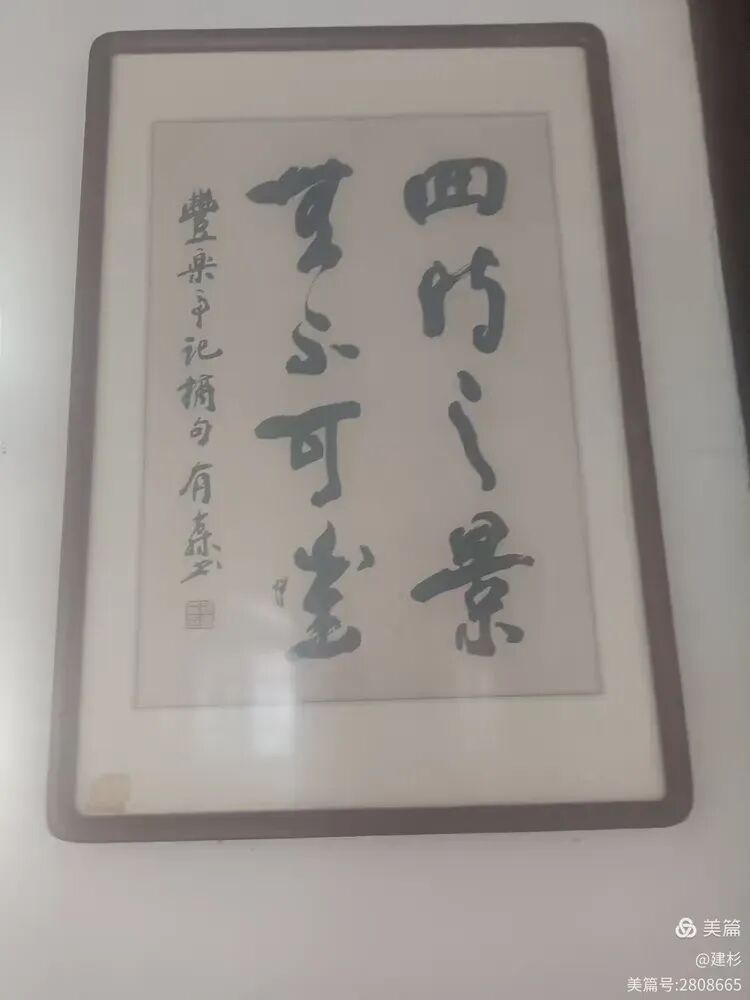 四时之景
無不可愛
豐樂亭记摘句 有森书
美篇
@建杉
美篇号:2808665